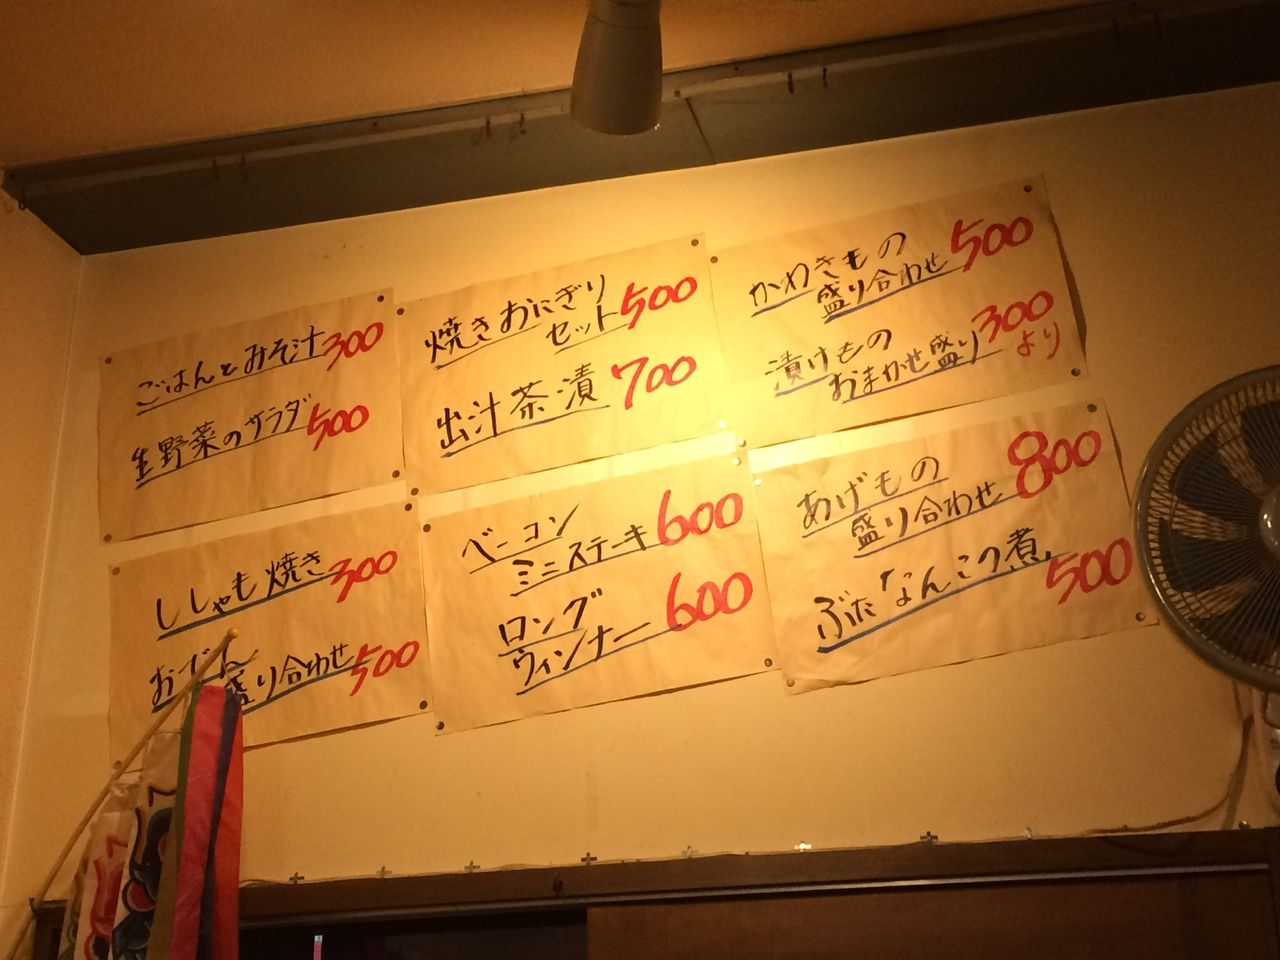 ごはんとみそ汁 300
生野菜のサラダ 500
焼きおにぎり
セット 500
出汁茶漬 700
かわきもの
盛り合わせ 500
漬けもの
おまかせ盛り 300
より
ししゃも焼き 300
おでん
盛り合わせ 500
ベーコン
ミニステーキ 600
ロング
ウィンナー 600
あげもの
盛り合わせ 800
ぶたなんこつ煮 500